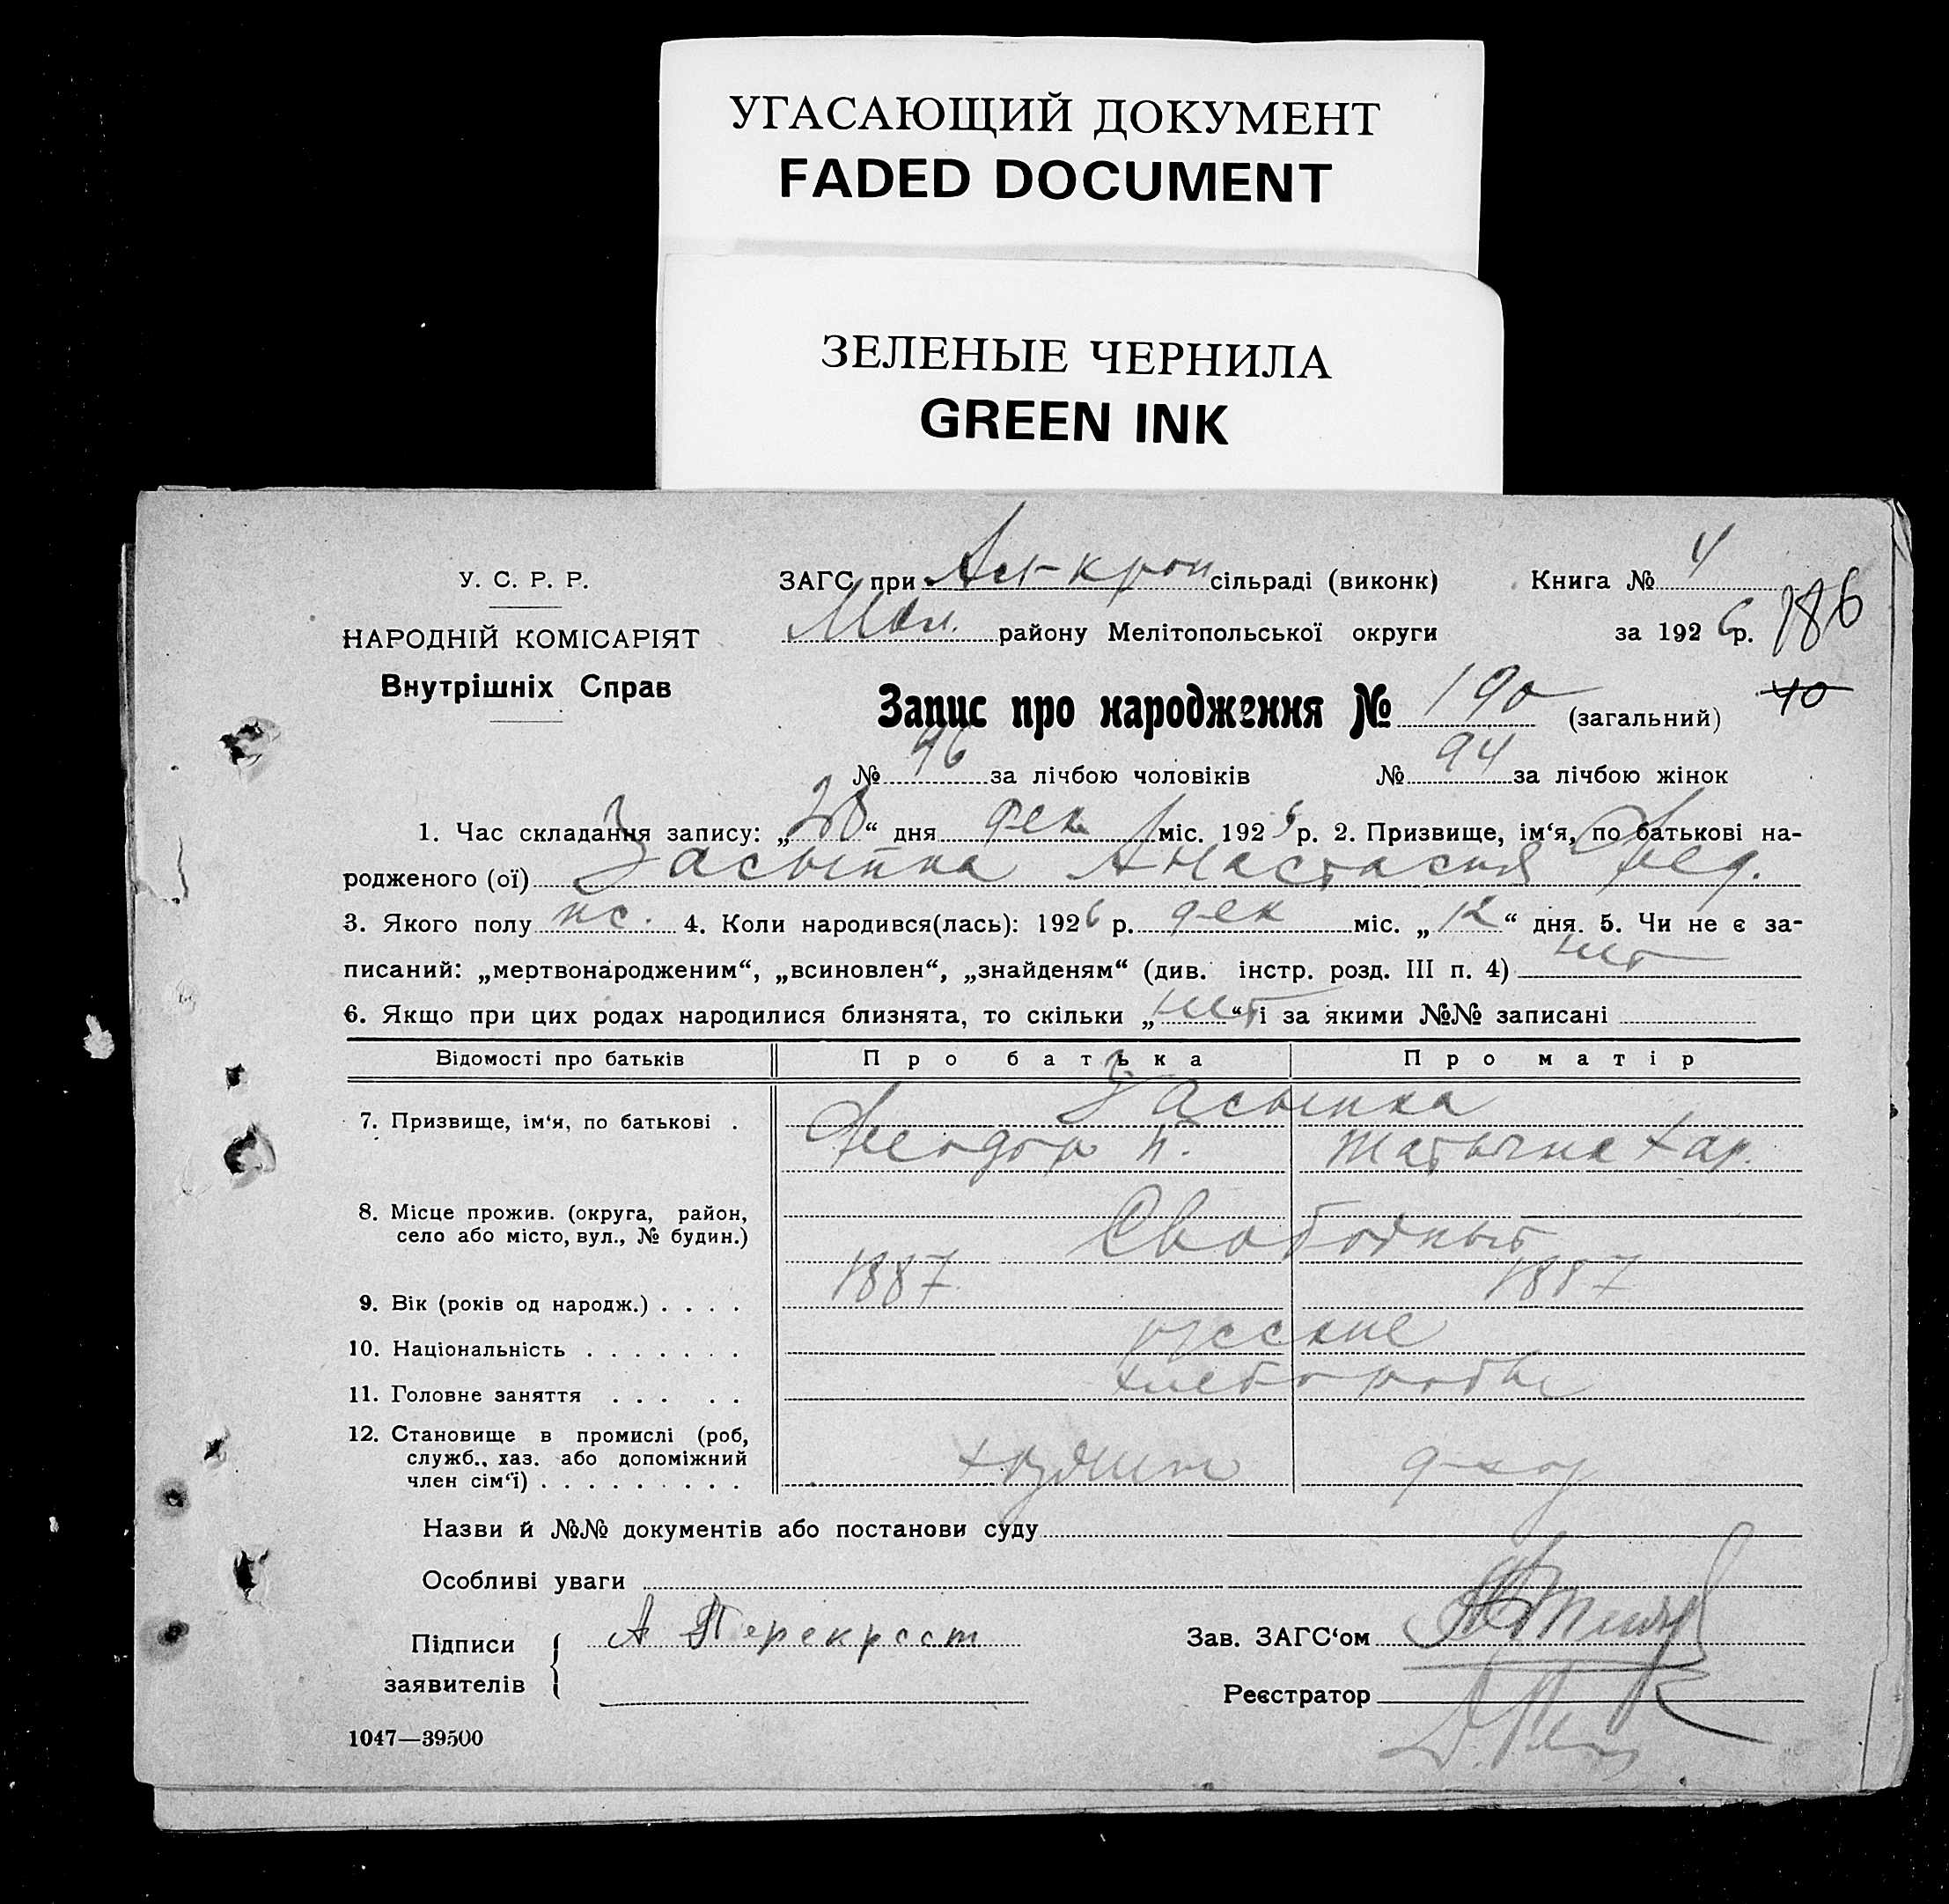 УГАСАЮЩИЙ ДОКУМЕНТ
FADED DOCUMENT
ЗЕЛЕНЫЕ ЧЕРНИЛА
GREEN INK
У. С. Р. Р.
НАРОДНІЙ КОМІСАРІЯТ
Внутрішніх Справ
ЗАГС при сільраді (виконк)
Книга № 4
району Мелітопольської округи
за 1926 р.
186
Запис про народження № 190 (загальний)
40
№ 96 за лічбою чоловіків № 94 за лічбою жінок
1. Час складання запису: „28“ дня дек міс. 1926 р. 2. Призвище, ім‘я, по батькові на-
родженого (ої) Засыпка Анастасия Фед.
3. Якого полу жс. 4. Коли народився(лась): 1926 р. дек міс. „12“ дня. 5. Чи не є за-
писаний: „мертвонародженим“, „всиновлен“, „знайденям“ (див. інстр. розд. III п. 4) нет
6. Якщо при цих родах народилися близнята, то скільки „нет“ і за якими №№ записані
Відомості про батьків Про батька Про матір
7. Призвище, ім‘я, по батькові . Засыпка
Феодор П. Татьяна Хар.
8. Місце прожив. (округа, район,
село або місто, вул., № будин.) Свободный
9. Вік (років од народж.) . . . . 1887 1887
10. Національність . . . . . . . русские
11. Головне заняття . . . . . хлеборобы
12. Становище в промислі (роб,
служб., хаз. або допоміжний
член сім‘ї) . . . . . . . . . хозяин д-хоз
Назви й №№ документів або постанови суду
Особливі уваги
Підписи
заявителів А Перекрест
Зав. ЗАГС‘ом
Реєстратор
1047—39500